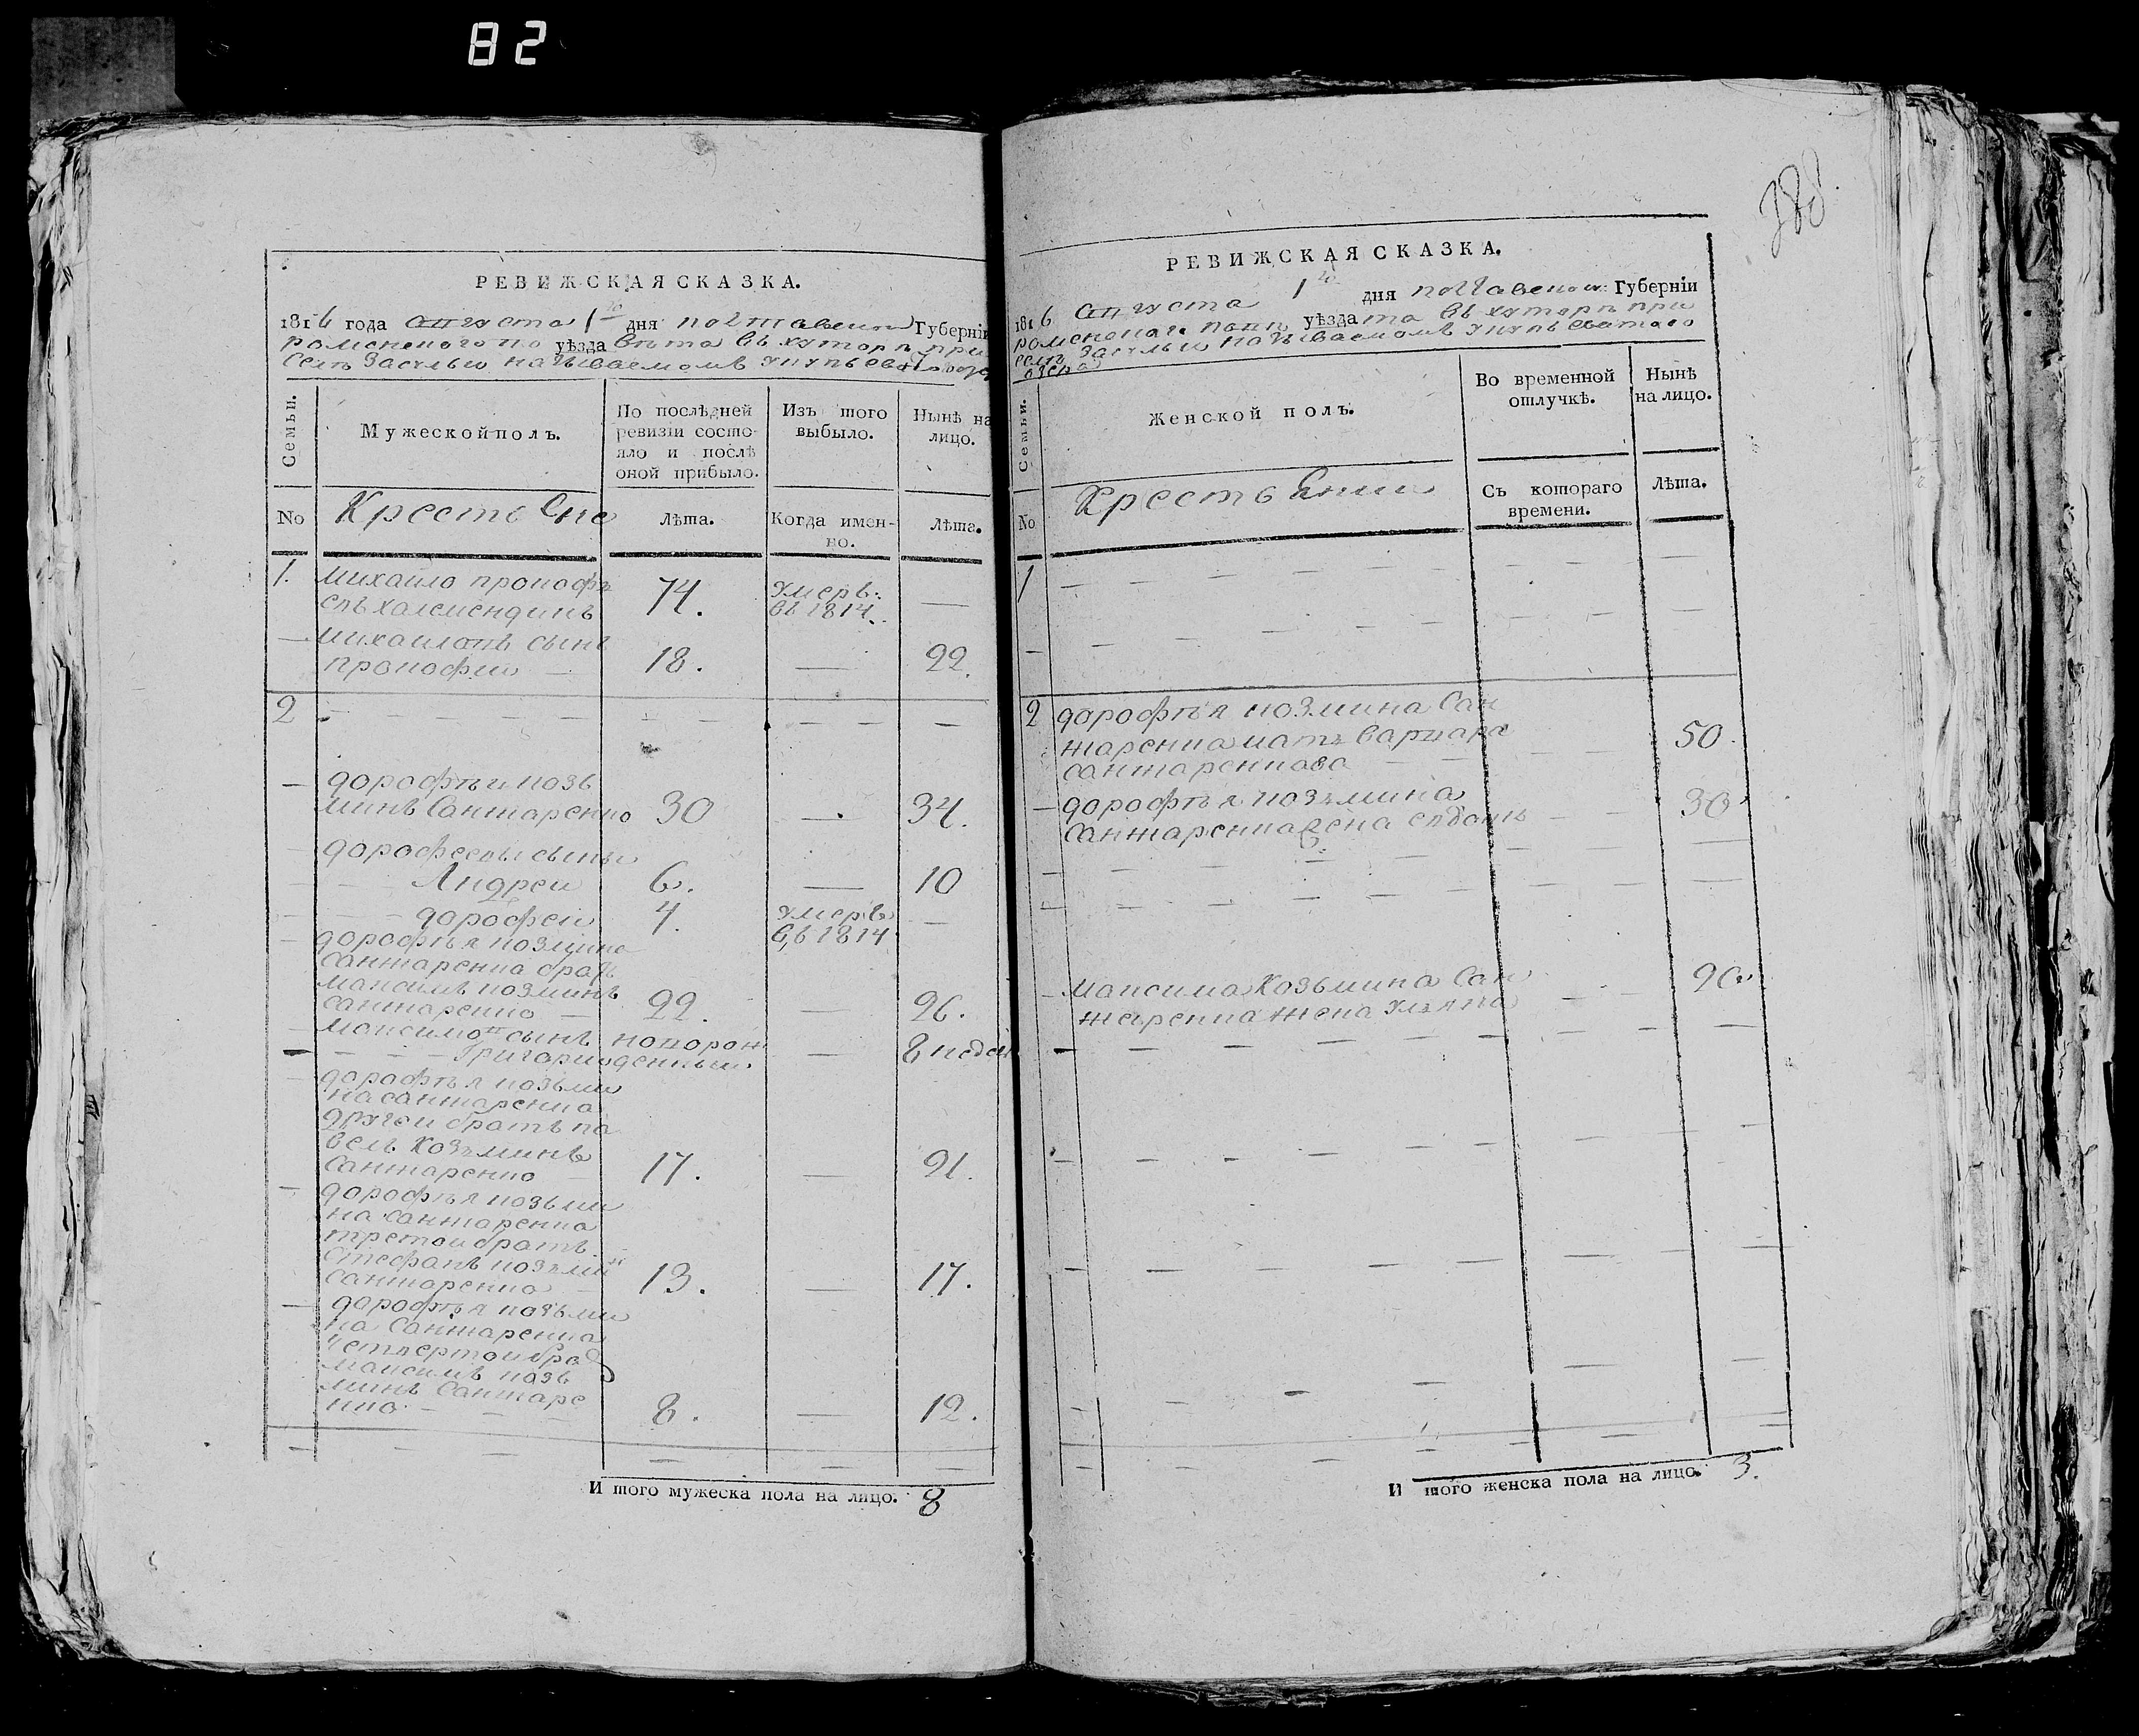 82
388.
РЕВИЖСКАЯ СКАЗКА.
1816 года августа 1го дня полтавской Губерніи
роменского по уѣзда вѣта въ хуторѣ при
селѣ Засульи называемомъ
Семьи.
Мужеской полъ.
По послѣдней ревизіи состояло и послѣ оной прибыло.
Изъ того выбыло.
Нынѣ на лицо.
No
Крестьяне
Лѣта.
Когда именно.
Лѣта.
1. михаило прокофь
евъ халемендикъ 74. умеръ: въ 1814. —
— михаиловъ сынъ
прокофий — 18. — 22.
2 — — — — —
— дорофѣй козь
минъ Санжаренко 30 — 34.
— дорофеевы сыны
Андрей 6. — 10
дорофей 4. умеръ въ 1814 —
— дорофѣя козмина
санжаренка братъ
максимъ козминъ
санжаренко — 22. — 26.
— максимов сынъ новорож
— Григорий денный — 8 недѣль
— дорофѣя козьми
на санжаренка
другой братъ па
велъ Козьминъ
санжаренко 17. — 21.
— дорофѣя козьми
на санжаренка
третой братъ
стефанъ козьмин
санжаренко 13. — 17.
— дорофѣя козьми
на Санжаренка
четвертой брат
максимъ козь
минъ Санжаре
нко — 8. — 12.
И того мужеска пола на лицо. 8
РЕВИЖСКАЯ СКАЗКА.
1816 августа 1го дня полтавской: Губерніи
роменского пов уѣзда та въ хуторѣ при
селѣ Засульи называемомъ святого
озера
Семьи.
Женской полъ.
Во временной отлучкѣ.
Нынѣ на лицо.
No
Крестьянки
Съ котораго времени.
Лѣта.
1 — — — — —
2 дорофѣя козмина Сан
жаренка мать варвара
санжаренкова — — 50.
— дорофѣя козьмина
санжаренка жена — — 30.
— максима Козьмина Сан
жаренка жена уляна — — 20.
И того женска пола на лицо. 3.